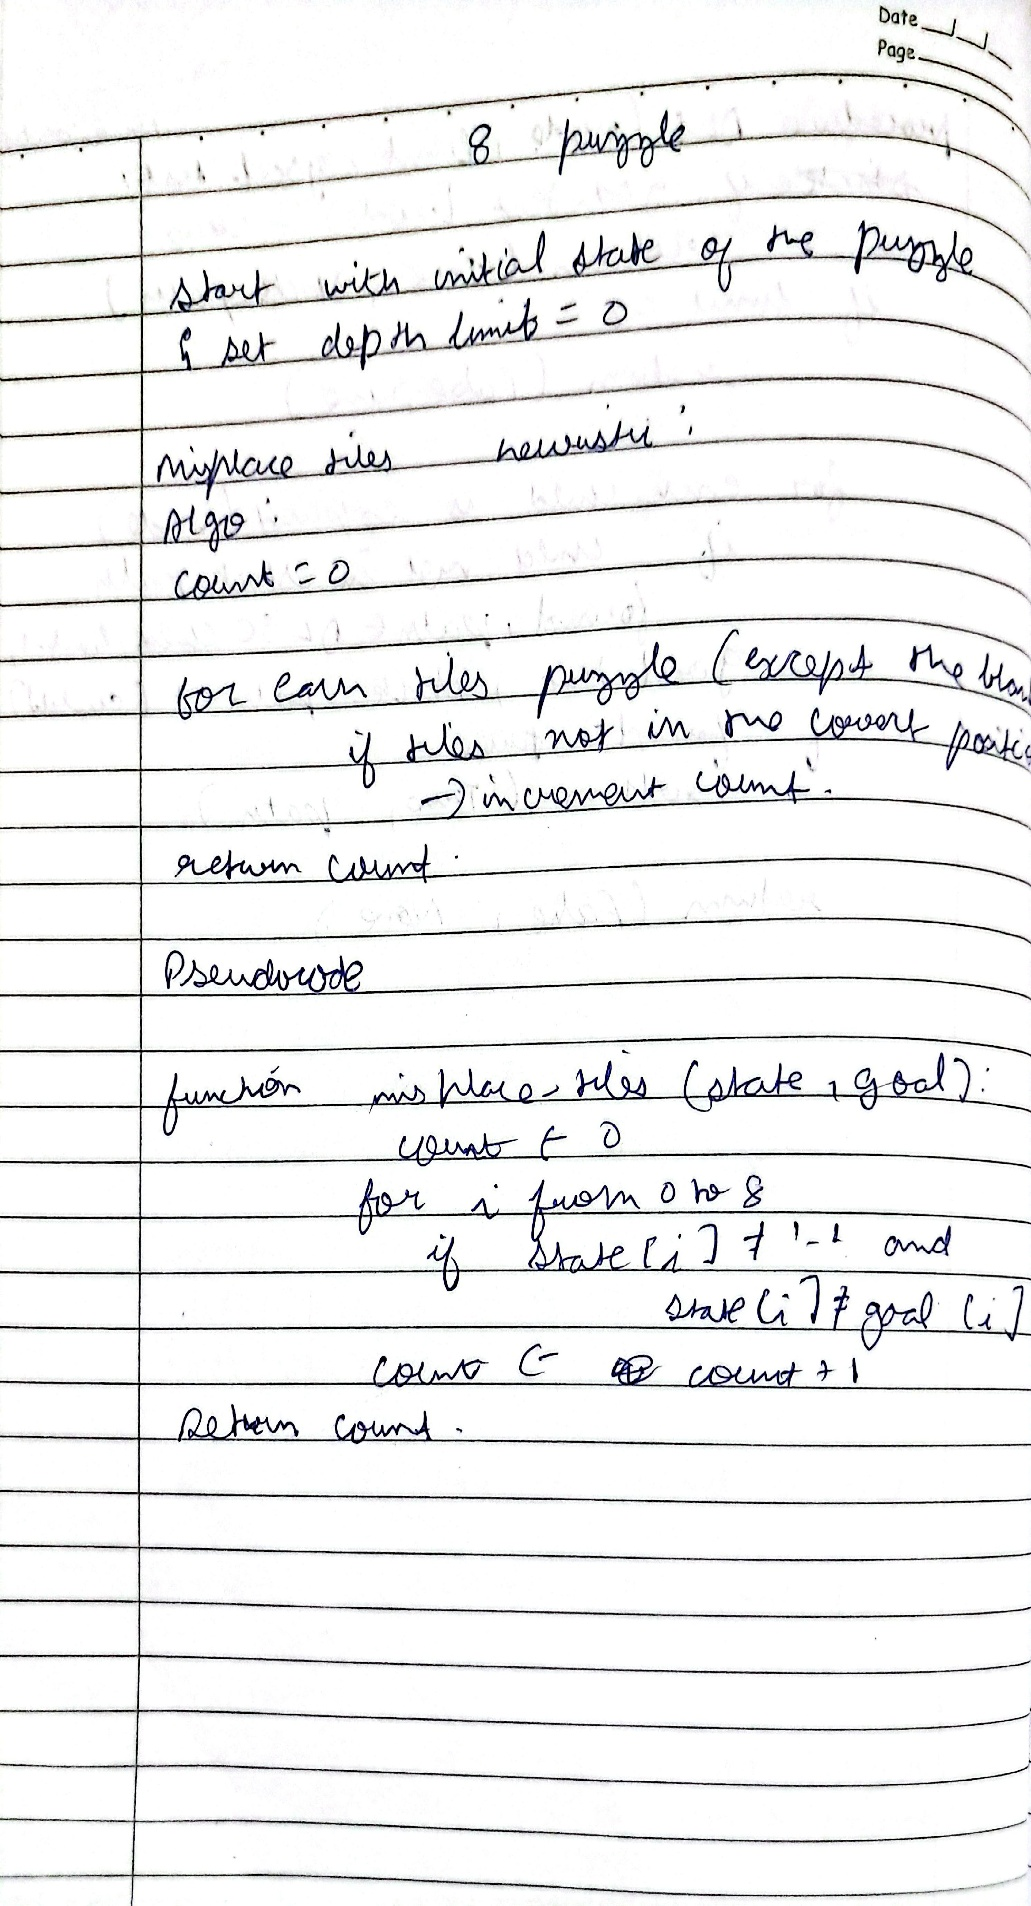 Date
Page
8 puzzle
Start with initial state of the puzzle
& set depth limit = 0
Misplace tiles heuristic :
Algo :
count = 0
for each tiles puzzle (except the blan
if tiles not in the correct positio
→ increment count.
return count.
Pseudocode
function misplace-tiles (state, goal):
count ← 0
for i from 0 to 8
if state[i] ≠ '-' and
state[i] ≠ goal [i]
count ← count + 1
Return count.